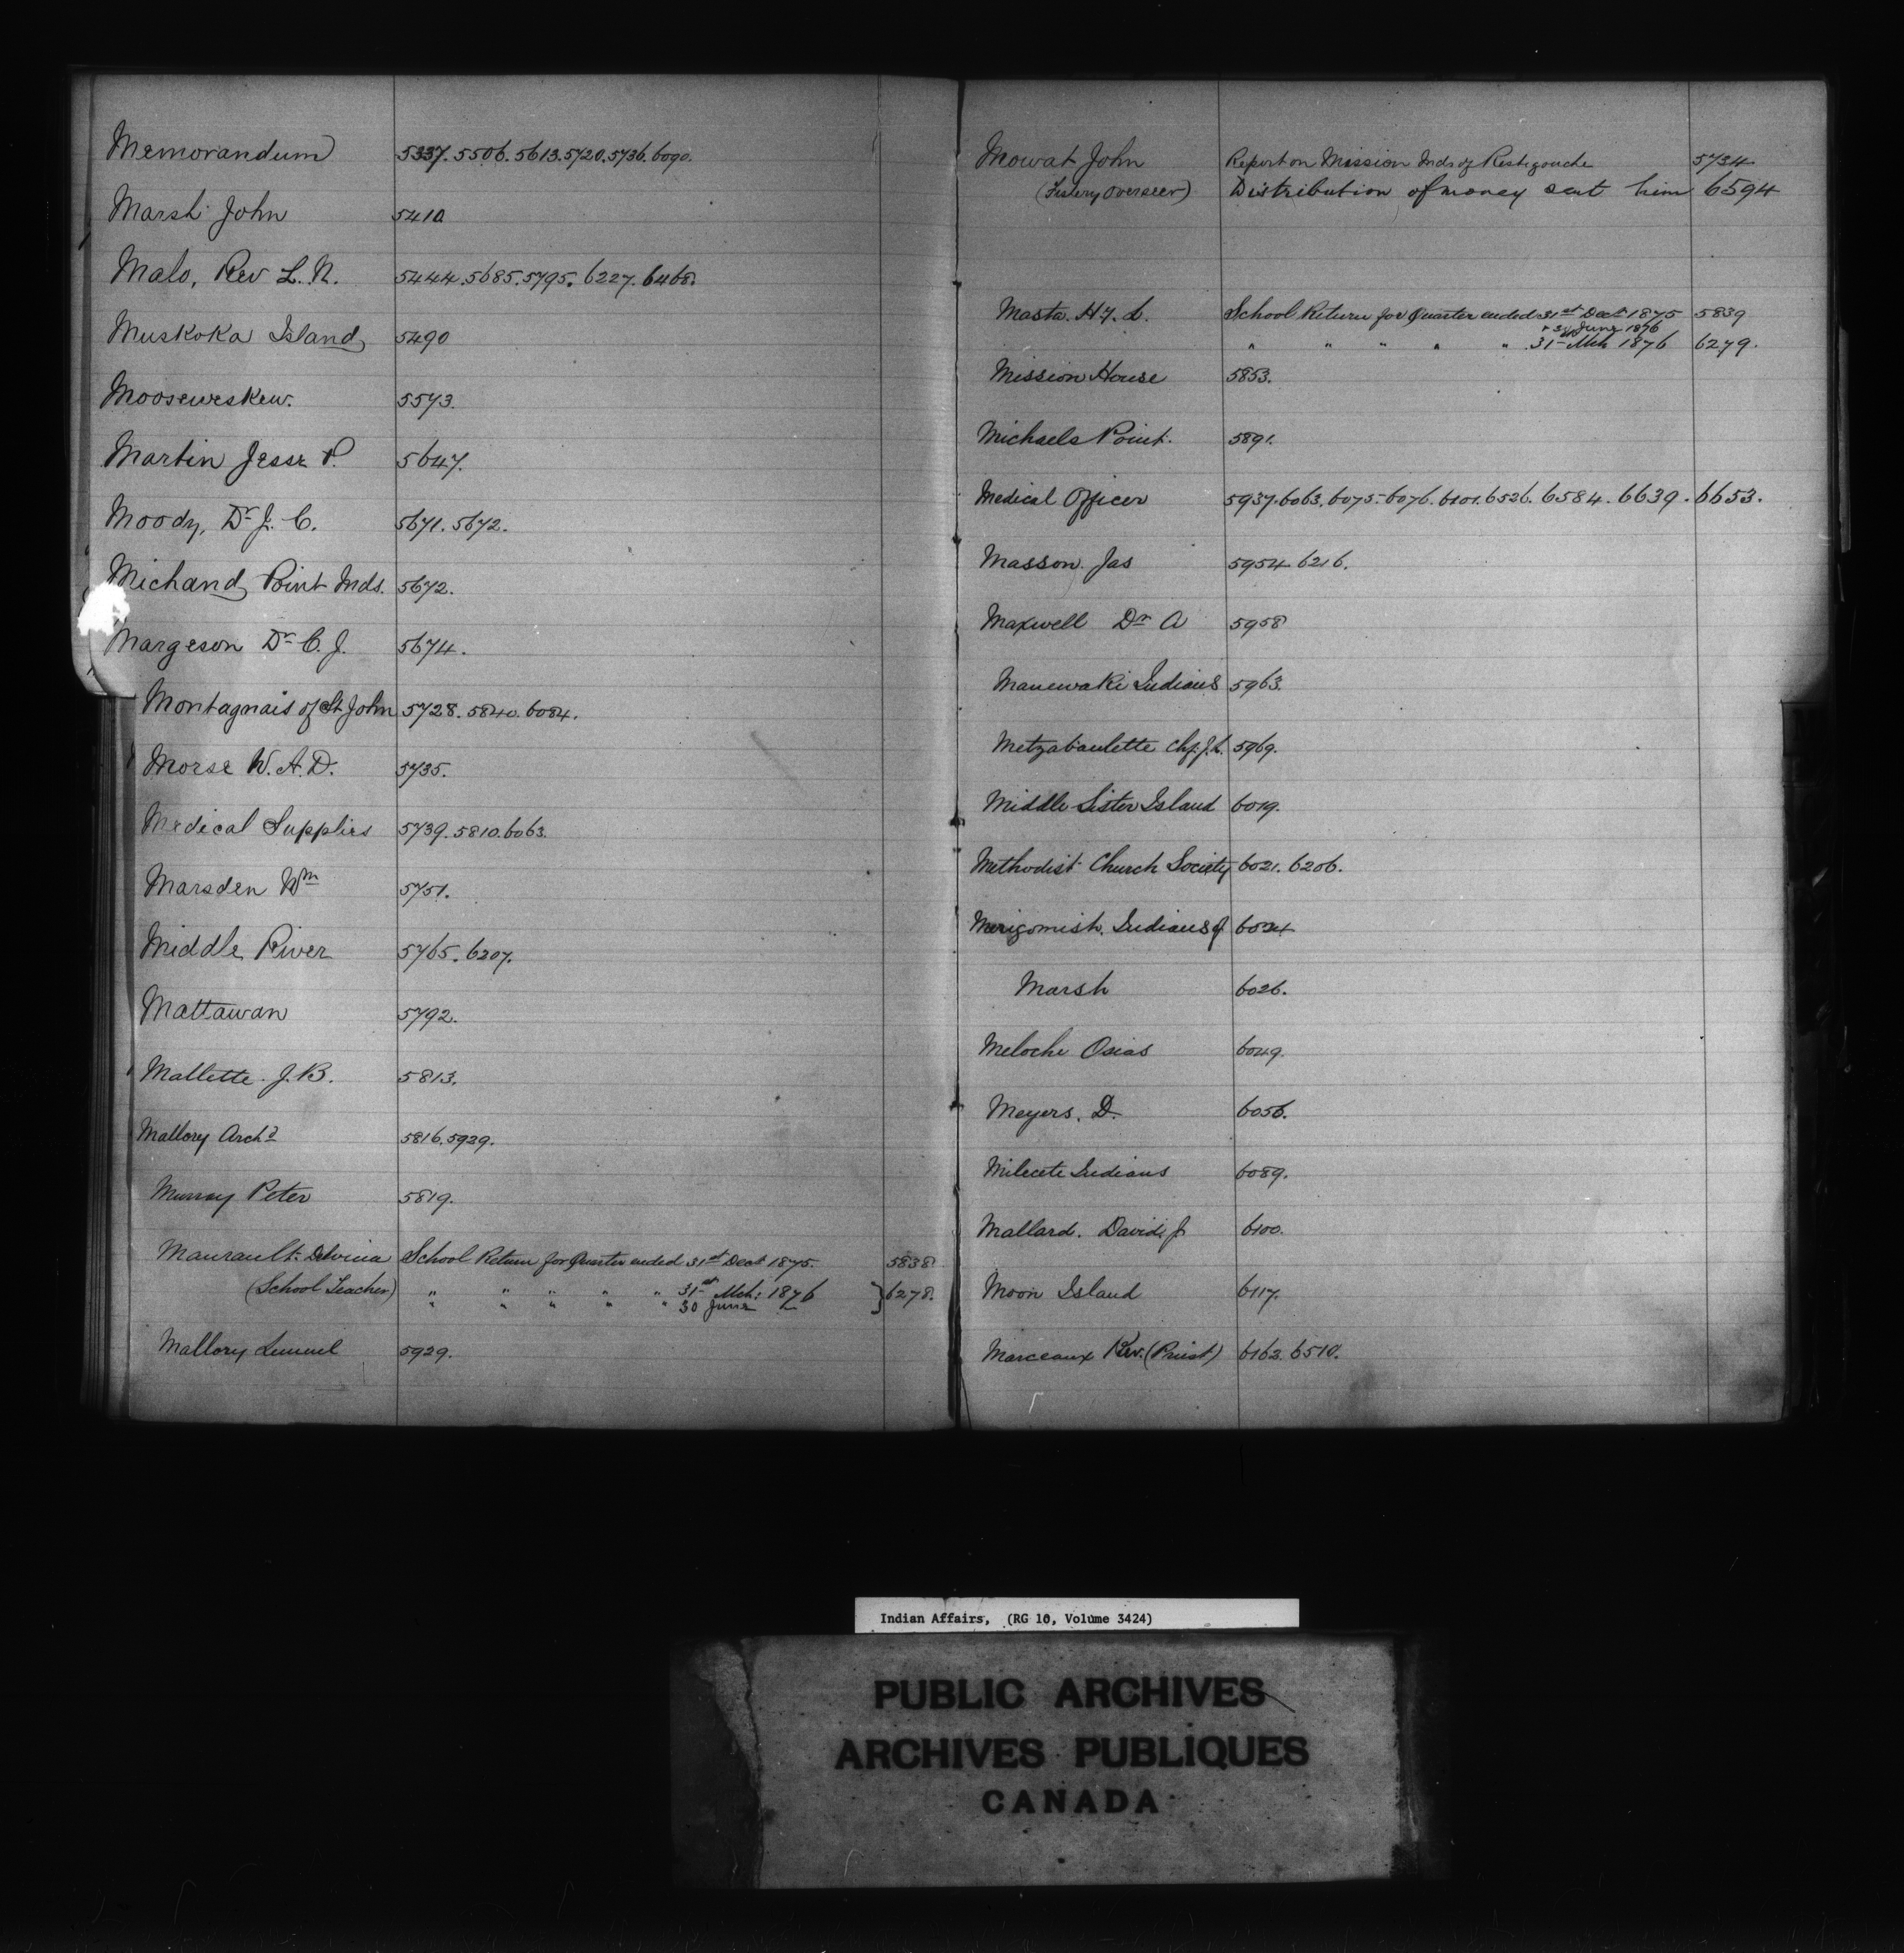 Memorandum 5337. 5506. 5613. 5720. 5736. 6090.
Marsh John 5410
Malo, Rev L. N. 5444. 5685. 5795. 6227. 6468.
Muskoka Island 5490
Mooseweskew. 5573.
Martin Jesse P. 5647.
Moody, Dr J. C. 5671. 5672.
Michand Point Inds. 5672.
Margeson Dr C. J. 5674.
Montagnais of St John 5728. 5840. 6084.
Morse W. A. D. 5735.
Medical Supplies 5739. 5810. 6063.
Marsden Wm 5751.
Middle River 5765. 6207.
Mattawan 5792.
Mallette. J. B. 5813.
Mallory Archd 5816. 5929.
Murray Peter 5819.
Maurault Delvina School Return for Quarter ended 31st Dect 1875. 5838
(School Teacher) " " " " " 31st Mch: 1876 } 6278.
" " " " " 30 June "
Mallory Lemuel 5929.
Mowat John Report on Mission Inds of Restigouche 5734
(Fishery Overseer) Distribution of money sent him 6594
Masta. Hy. L. School Return for Quarter ended 31st Dect 1875 5839
" 30 June 1876
" " " " " 31st Mch 1876 6279.
Mission House 5853.
Michaels Point. 5891.
Medical Officer 5937. 6063. 6075. 6076. 6101. 6526. 6584. 6639. 6653.
Masson. Jas 5954 6216.
Maxwell Dr A 5958
Manewaki Indians 5963.
Metzabaulette Chf. J. L. 5969.
Middle Sister Island 6019.
Methodist Church Society 6021. 6206.
Merigomish. Indians of 6024
Marsh 6026.
Meloche Osias 6049.
Meyers. D. 6056.
Milecete Indians 6089.
Mallard. David, Jr 6100.
Moon Island 6117.
Marceaux Rev. (Priest) 6163. 6510.
Indian Affairs, (RG 10, Volume 3424)
PUBLIC ARCHIVES
ARCHIVES PUBLIQUES
CANADA